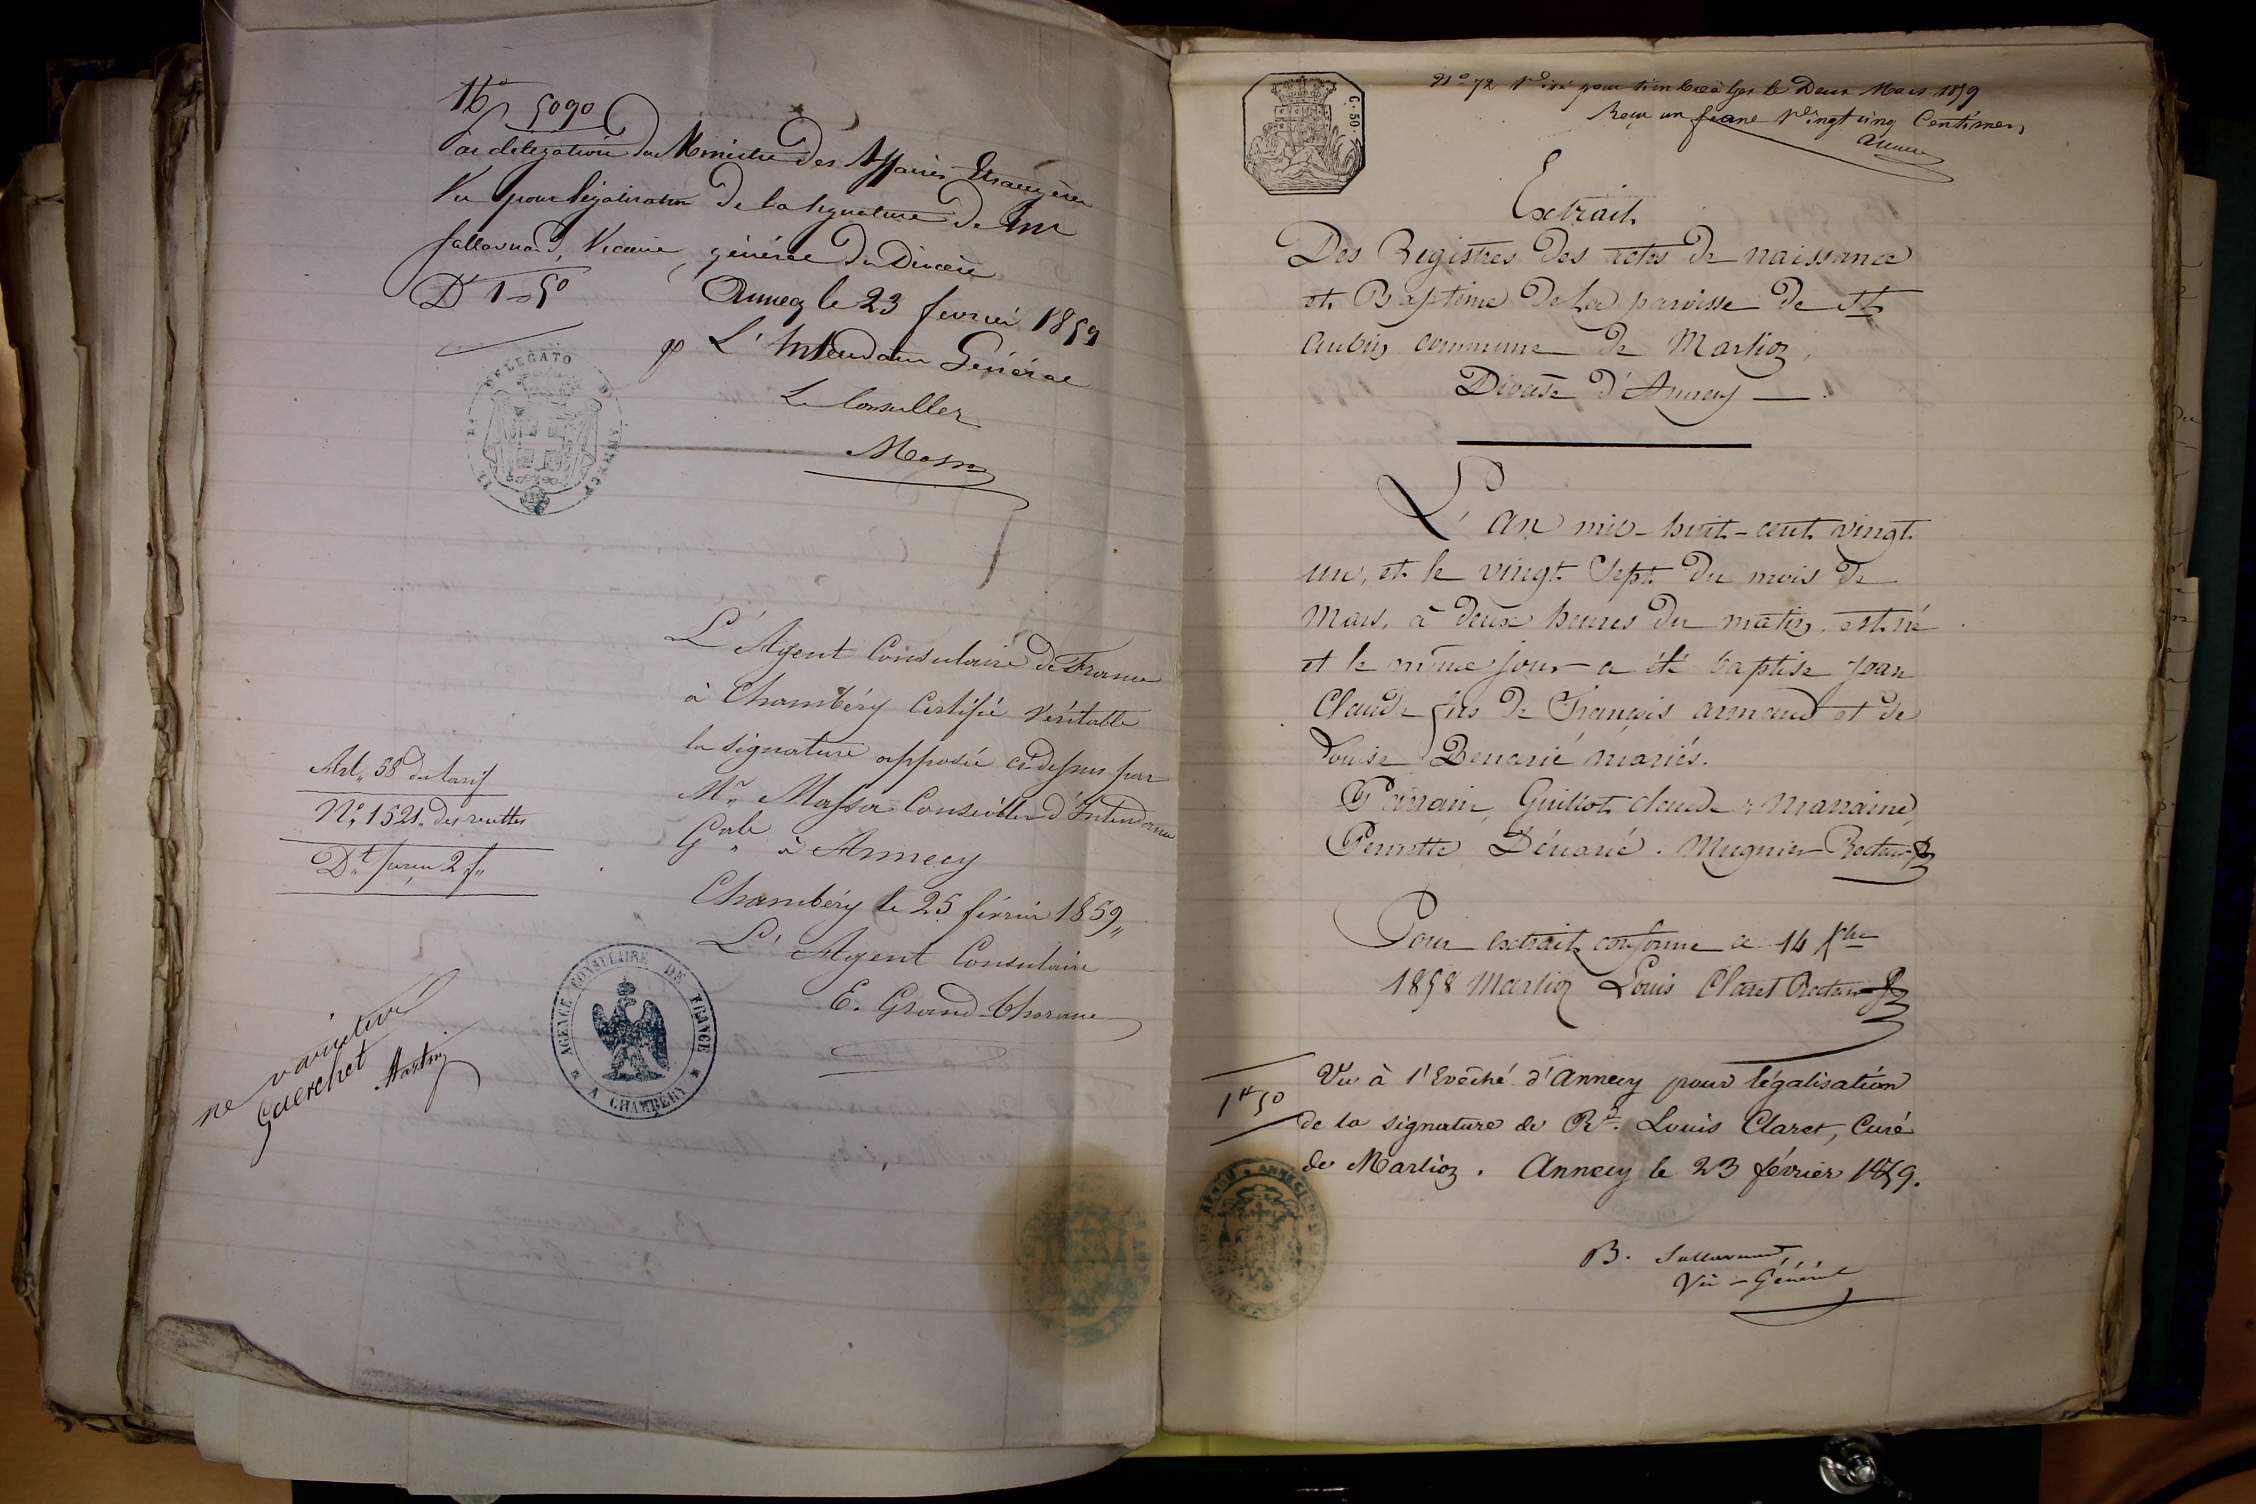 5090
Par délégation du Ministre des Affaires Etrangères
Vu pour légalisation de la signature de Mr
Sallavuard, Vicaire général du Diocèse
Dt 1-50
Annecy le 23 fevrier 1859
po L'Intendant Général
Le Conseiller
Masson
L'Agent Consulaire de France
à Chambéry Certifie véritable
la signature apposée ci-dessus par
Mr. Masson Conseiller d'Intendance
Gale à Annecy
Chambéry le 25 février 1859,,
L'Agent Consulaire
E. Grand-Thorane
Art. 58 du tarif
No. 1521. des recettes
Dt. perçu 2 f.
AGENCE CONSULAIRE DE FRANCE
A CHAMBÉRY
ne varietur
Guerchet
C. 50
No 72 Visé pour timbre à le Deux Mars 1859
Reçu un franc Vingt cinq Centimes
Extrait
Des Registres des actes de naissance
et Baptême de la paroisse de St
Aubin commune de Marlioz,
Diocèse d'Annecy —.
L'an mil-huit-cent vingt
un, et le vingt sept du mois de
Mars, à deux heures du matin, est né
et le même jour a été baptisé Jean
Claude fils de François armand et de
Louise Denarié mariés.
Parrain, Guillot claude; Marraine,
Pernette Dénarié. Mugnier Recteur
Pour extrait conforme ce 14 Xbre
1858 Marlioz Louis Claret Recteur
1f 50
Vu à l'Evêché d'Annecy pour légalisation
de la signature de Rd. Louis Claret, Curé
de Marlioz. Annecy le 23 février 1859.
B. Sallavuard
Vic-Général